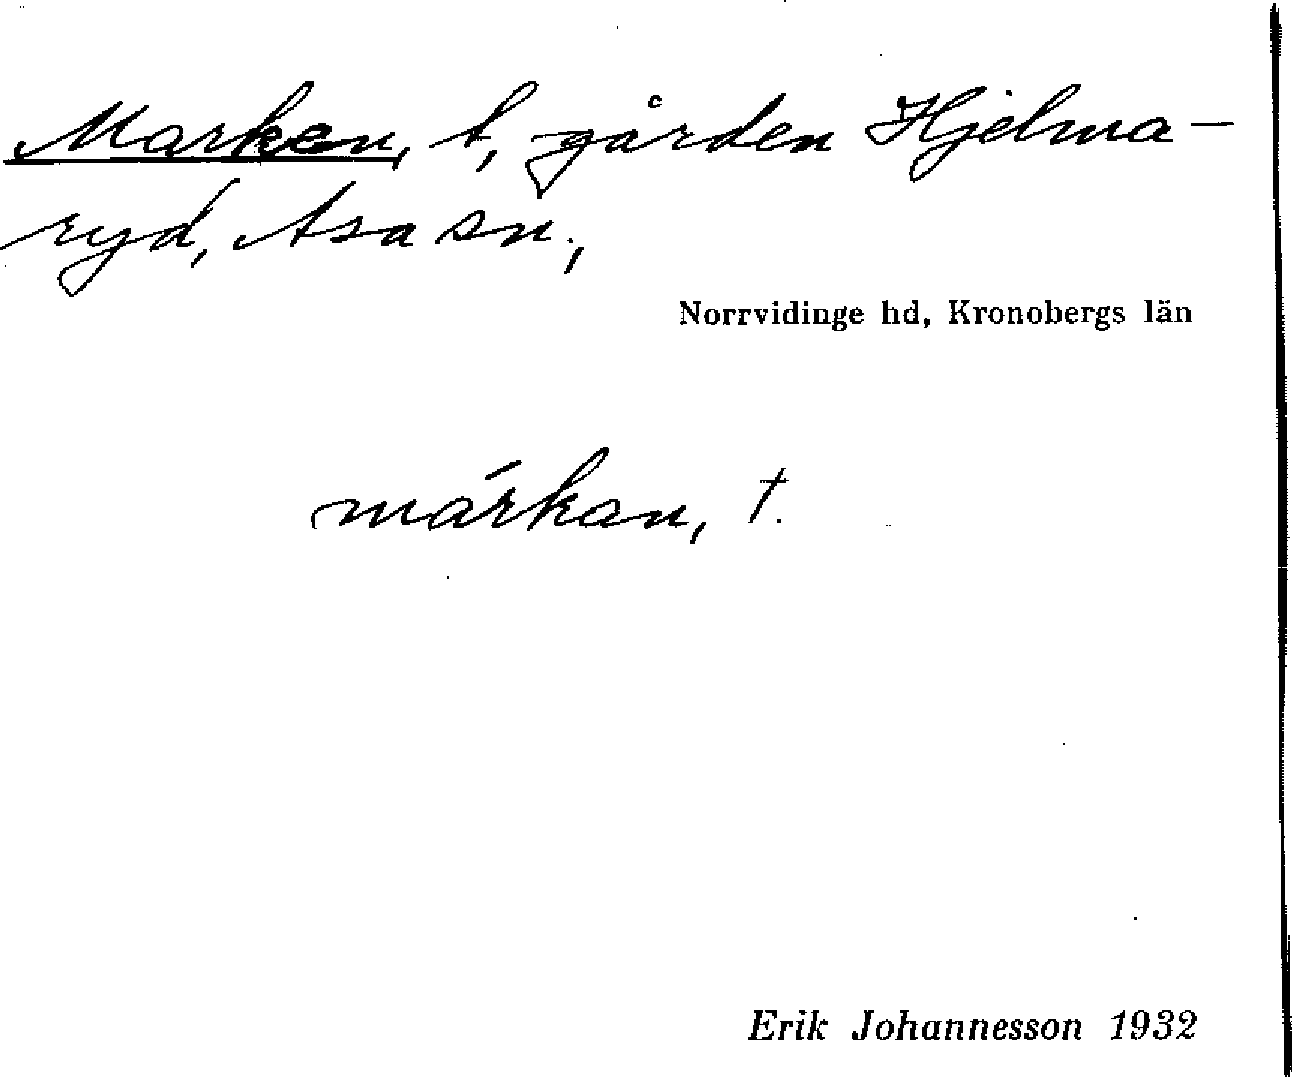 Marken, t, gården Hjelma-
ryd, Asa sn.,
Norrvidinge hd, Kronobergs län
márkan, †.
Erik Johannesson 1932